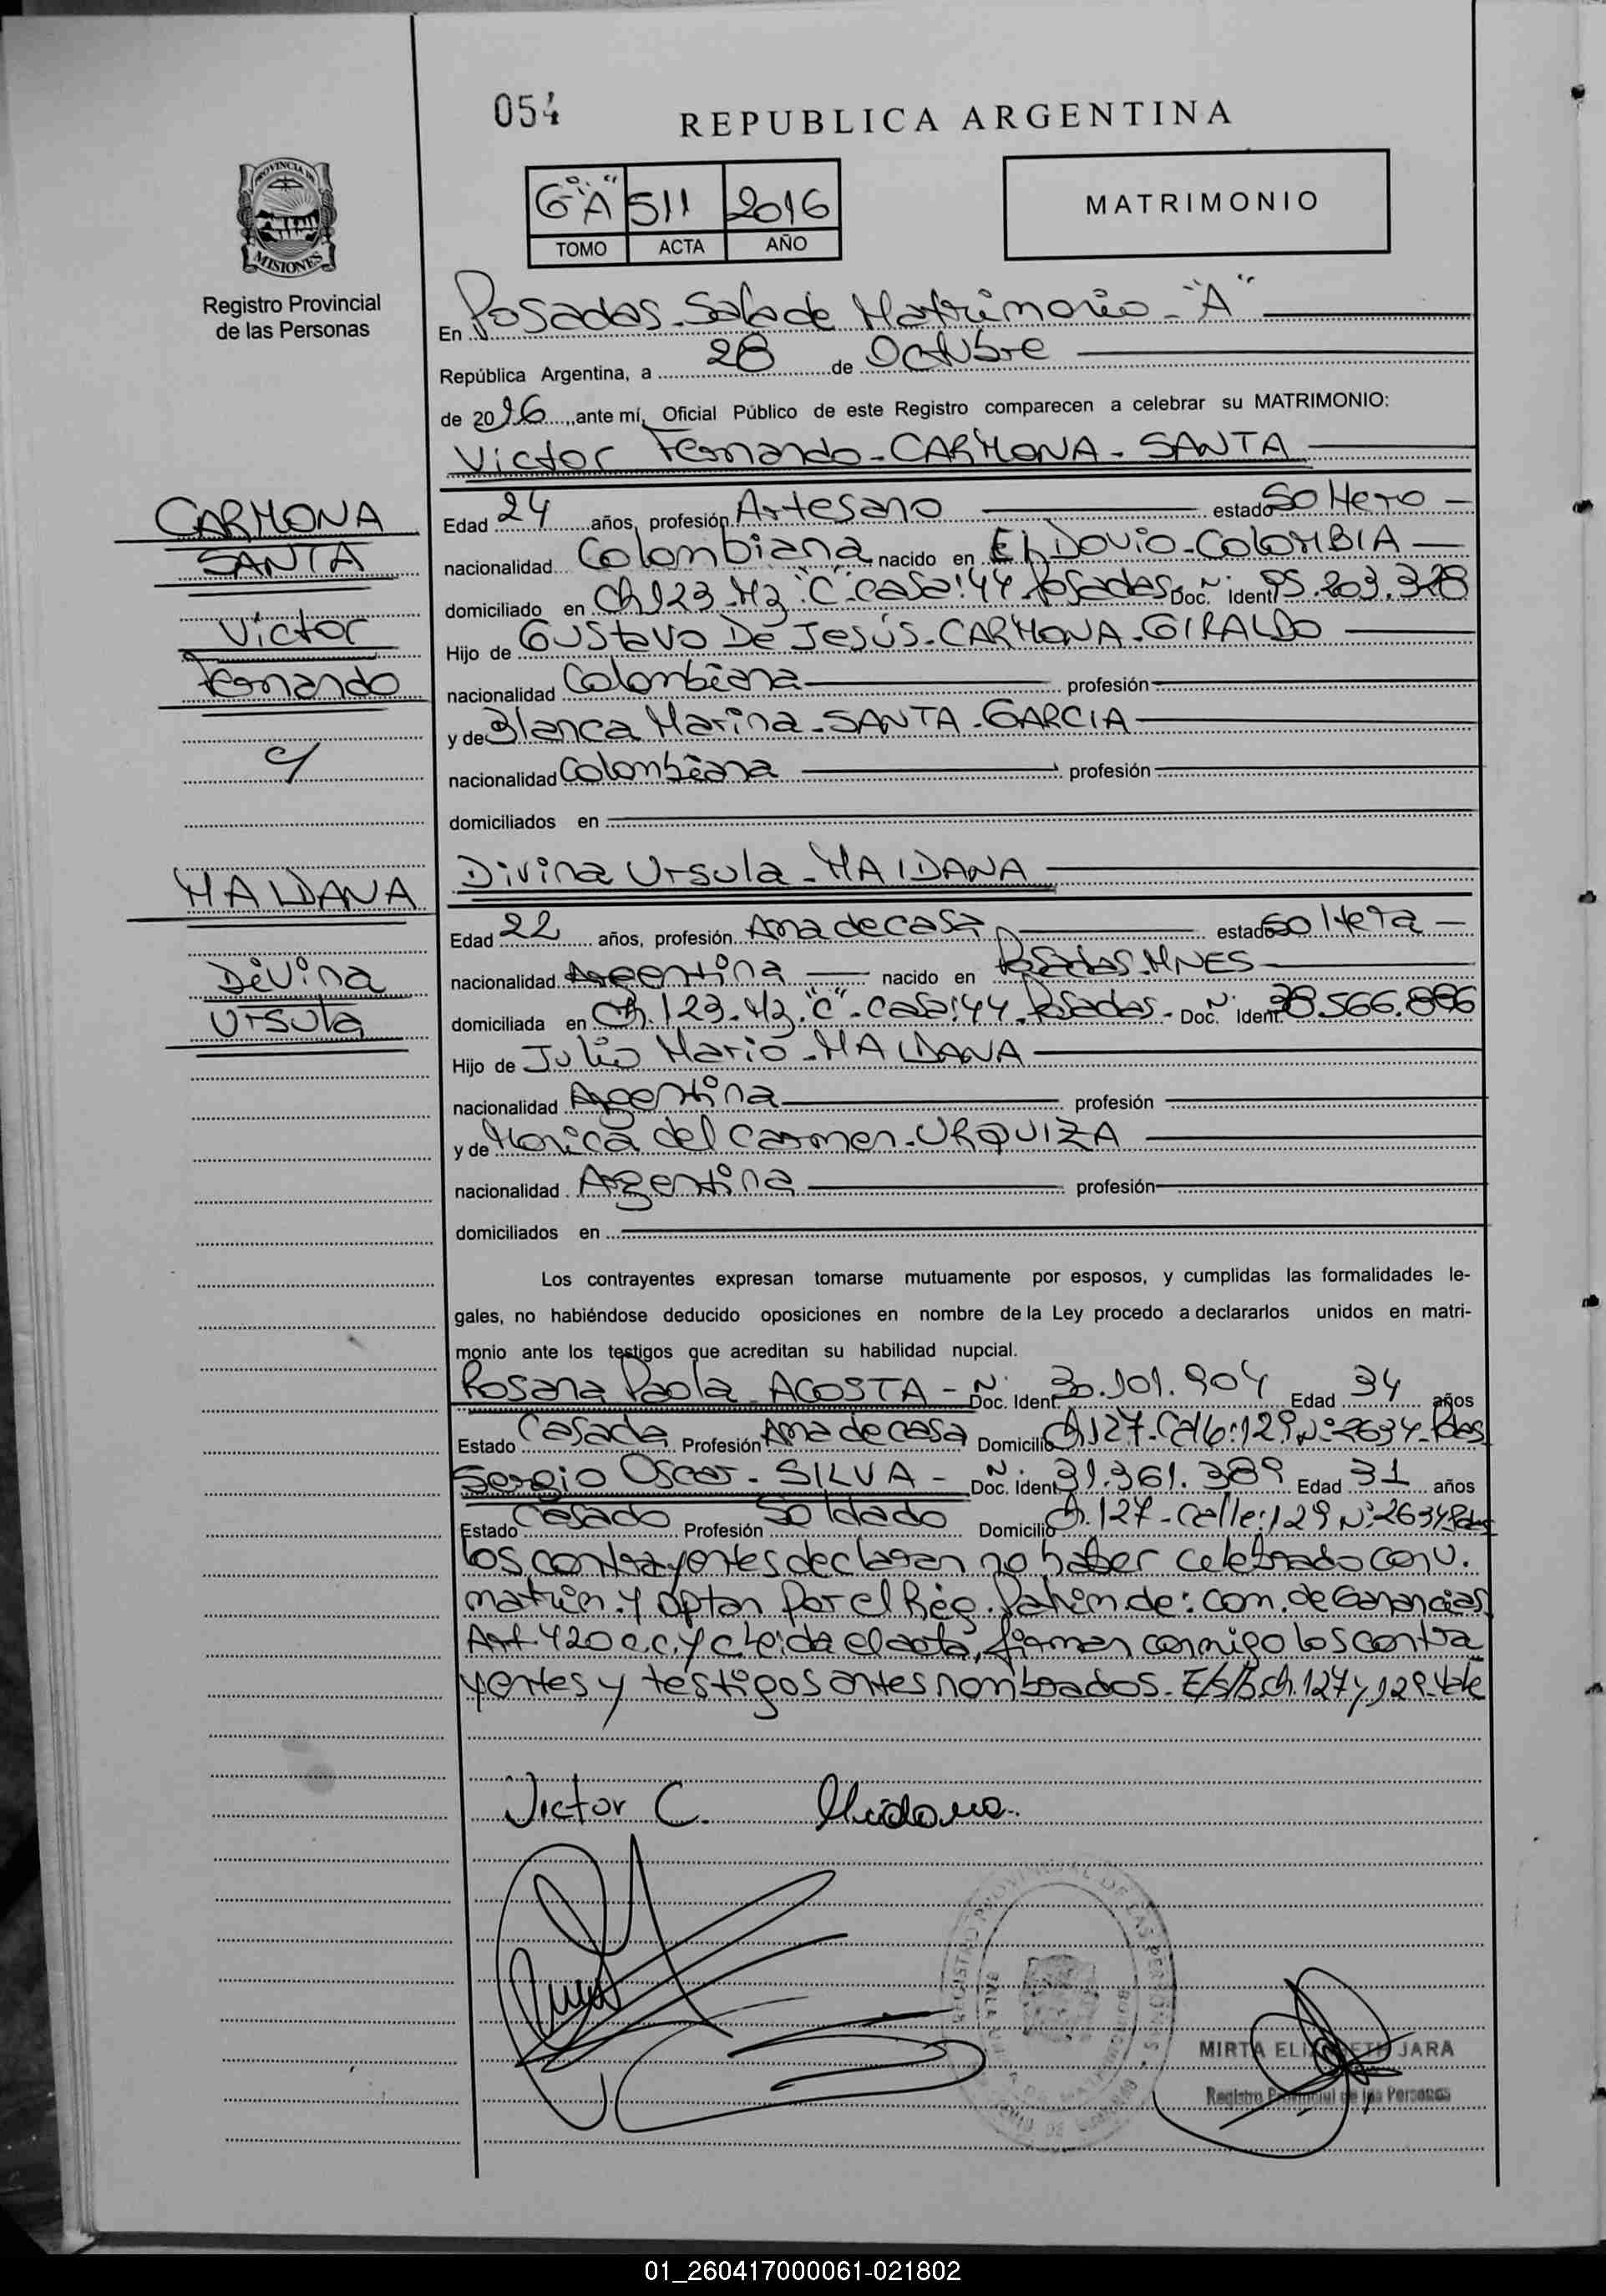 054
REPUBLICA ARGENTINA
PROVINCIA DE
MISIONES
Registro Provincial
de las Personas
6º "A" 511 2016
TOMO ACTA AÑO
MATRIMONIO
En Posadas. Sala de Matrimonio - "A"
República Argentina, a 28 de Octubre
de 2016, ante mí, Oficial Público de este Registro comparecen a celebrar su MATRIMONIO:
Victor Fernando - CARMONA - SANTA
CARMONA
SANTA
Victor
Fernando
c/
MAIDANA
Divina
Ursula
Edad 24 años, profesión Artesano estado Soltero -
nacionalidad Colombiana nacido en El Dovio - COLOMBIA
domiciliado en Ch 123 - Mz "C" - casa: 44 Posadas Doc. Nº Ident. 95.203.328
Hijo de Gustavo De Jesús - CARMONA - GIRALDO
nacionalidad Colombiana profesión
y de Blanca Marina - SANTA - GARCIA
nacionalidad Colombiana profesión
domiciliados en
Divina Ursula - MAIDANA
Edad 22 años, profesión Ama de casa estado Soltera -
nacionalidad Argentina nacido en Posadas. MNES
domiciliada en Ch. 123 - Mz. "C" - casa: 44 - Posadas - Doc. Nº Ident. 38.566.886
Hijo de Julio Mario - MAIDANA
nacionalidad Argentina profesión
y de Monica del Carmen - URQUIZA
nacionalidad Argentina profesión
domiciliados en
Los contrayentes expresan tomarse mutuamente por esposos, y cumplidas las formalidades le-
gales, no habiéndose deducido oposiciones en nombre de la Ley procedo a declararlos unidos en matri-
monio ante los testigos que acreditan su habilidad nupcial.
Rosana Paola - ACOSTA - Doc. Nº Ident. 30.101.904 Edad 34 años
Estado Casada Profesión Ama de casa Domicilio Ch 127 - Calle: 129 Nº 2634 - Pdas
Sergio Oscar - SILVA - Doc. Nº Ident. 31.361.389 Edad 31 años
Estado Casado Profesión Soldado Domicilio Ch. 127 - Calle: 129 Nº 2634 Pdas
los contrayentes declaran no haber celebrado conv.
matrim. y optan Por el Rég. Patrim. de: com. de Ganancias
Art. 420 c. c. y c. Leída el acta, firman conmigo los contra
yentes y testigos antes nombrados. E/s/b. ch. 127 y 129. Vale
Victor C. Maidana
REGISTRO PROVINCIAL DE LAS PERSONAS
MIRTA ELIZABETH JARA
Registro Provincial de las Personas
01_260417000061-021802